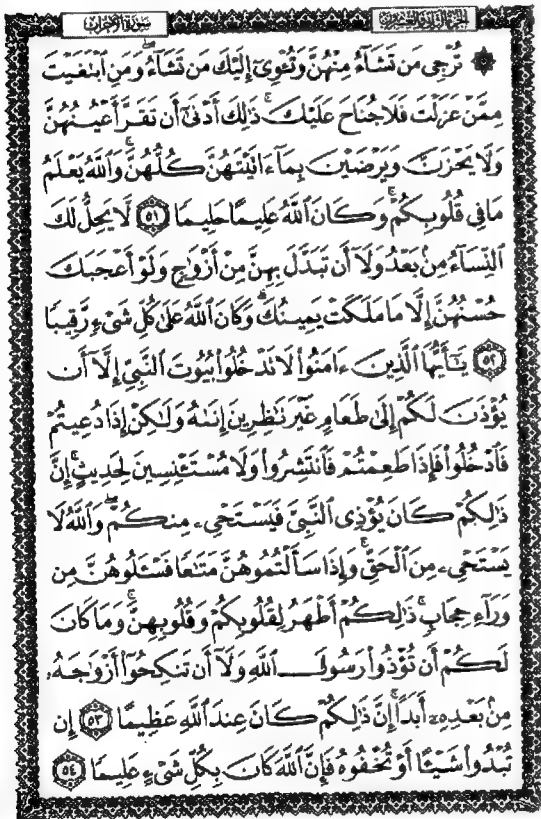 سورة الأحزاب
الجزء الثاني والعشرون
۞ تُرْجِى مَن تَشَآءُ مِنْهُنَّ وَتُـْٔوِىٓ إِلَيْكَ مَن تَشَآءُ ۖ وَمَنِ ٱبْتَغَيْتَ
مِمَّنْ عَزَلْتَ فَلَا جُنَاحَ عَلَيْكَ ۚ ذَٰلِكَ أَدْنَىٰٓ أَن تَقَرَّ أَعْيُنُهُنَّ
وَلَا يَحْزَنَّ وَيَرْضَيْنَ بِمَآ ءَاتَيْتَهُنَّ كُلُّهُنَّ ۚ وَٱللَّهُ يَعْلَمُ
مَا فِى قُلُوبِكُمْ ۚ وَكَانَ ٱللَّهُ عَلِيمًا حَلِيمًا ٥١ لَّا يَحِلُّ لَكَ
ٱلنِّسَآءُ مِنۢ بَعْدُ وَلَآ أَن تَبَدَّلَ بِهِنَّ مِنْ أَزْوَٰجٍ وَلَوْ أَعْجَبَكَ
حُسْنُهُنَّ إِلَّا مَا مَلَكَتْ يَمِينُكَ ۗ وَكَانَ ٱللَّهُ عَلَىٰ كُلِّ شَىْءٍ رَّقِيبًا
٥٢ يَـٰٓأَيُّهَا ٱلَّذِينَ ءَامَنُوا۟ لَا تَدْخُلُوا۟ بُيُوتَ ٱلنَّبِىِّ إِلَّآ أَن
يُؤْذَنَ لَكُمْ إِلَىٰ طَعَامٍ غَيْرَ نَـٰظِرِينَ إِنَىٰهُ وَلَـٰكِنْ إِذَا دُعِيتُمْ
فَٱدْخُلُوا۟ فَإِذَا طَعِمْتُمْ فَٱنتَشِرُوا۟ وَلَا مُسْتَـْٔنِسِينَ لِحَدِيثٍ ۚ إِنَّ
ذَٰلِكُمْ كَانَ يُؤْذِى ٱلنَّبِىَّ فَيَسْتَحْىِۦ مِنكُمْ ۖ وَٱللَّهُ لَا
يَسْتَحْىِۦ مِنَ ٱلْحَقِّ ۚ وَإِذَا سَأَلْتُمُوهُنَّ مَتَـٰعًا فَسْـَٔلُوهُنَّ مِن
وَرَآءِ حِجَابٍ ۚ ذَٰلِكُمْ أَطْهَرُ لِقُلُوبِكُمْ وَقُلُوبِهِنَّ ۚ وَمَا كَانَ
لَكُمْ أَن تُؤْذُوا۟ رَسُولَ ٱللَّهِ وَلَآ أَن تَنكِحُوٓا۟ أَزْوَٰجَهُۥ
مِنۢ بَعْدِهِۦٓ أَبَدًا ۚ إِنَّ ذَٰلِكُمْ كَانَ عِندَ ٱللَّهِ عَظِيمًا ٥٣ إِن
تُبْدُوا۟ شَيْـًٔا أَوْ تُخْفُوهُ فَإِنَّ ٱللَّهَ كَانَ بِكُلِّ شَىْءٍ عَلِيمًا ٥٤